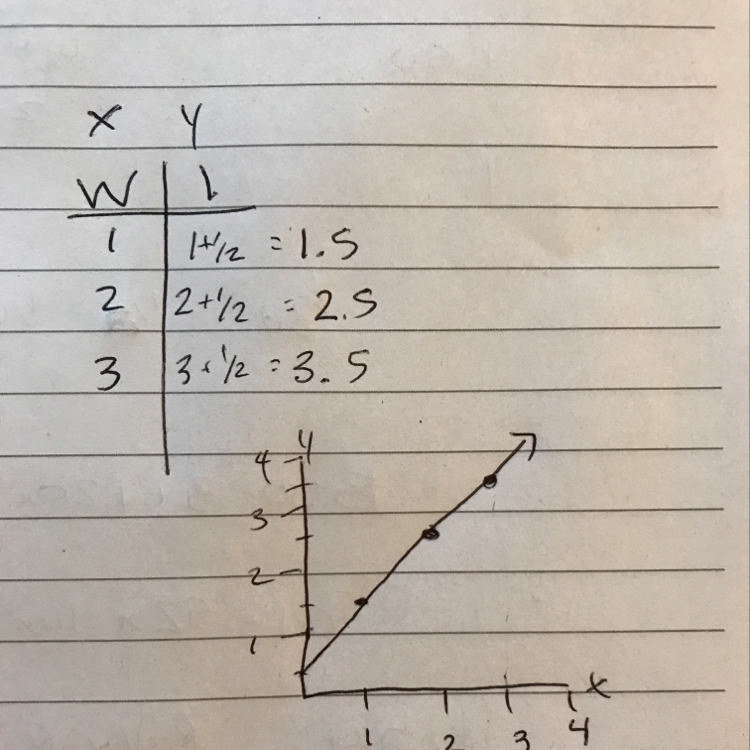 x y
W l
1 1+1/2 = 1.5
2 2+1/2 = 2.5
3 3+1/2 = 3.5
y
4
3
2
1
x
1 2 3 4